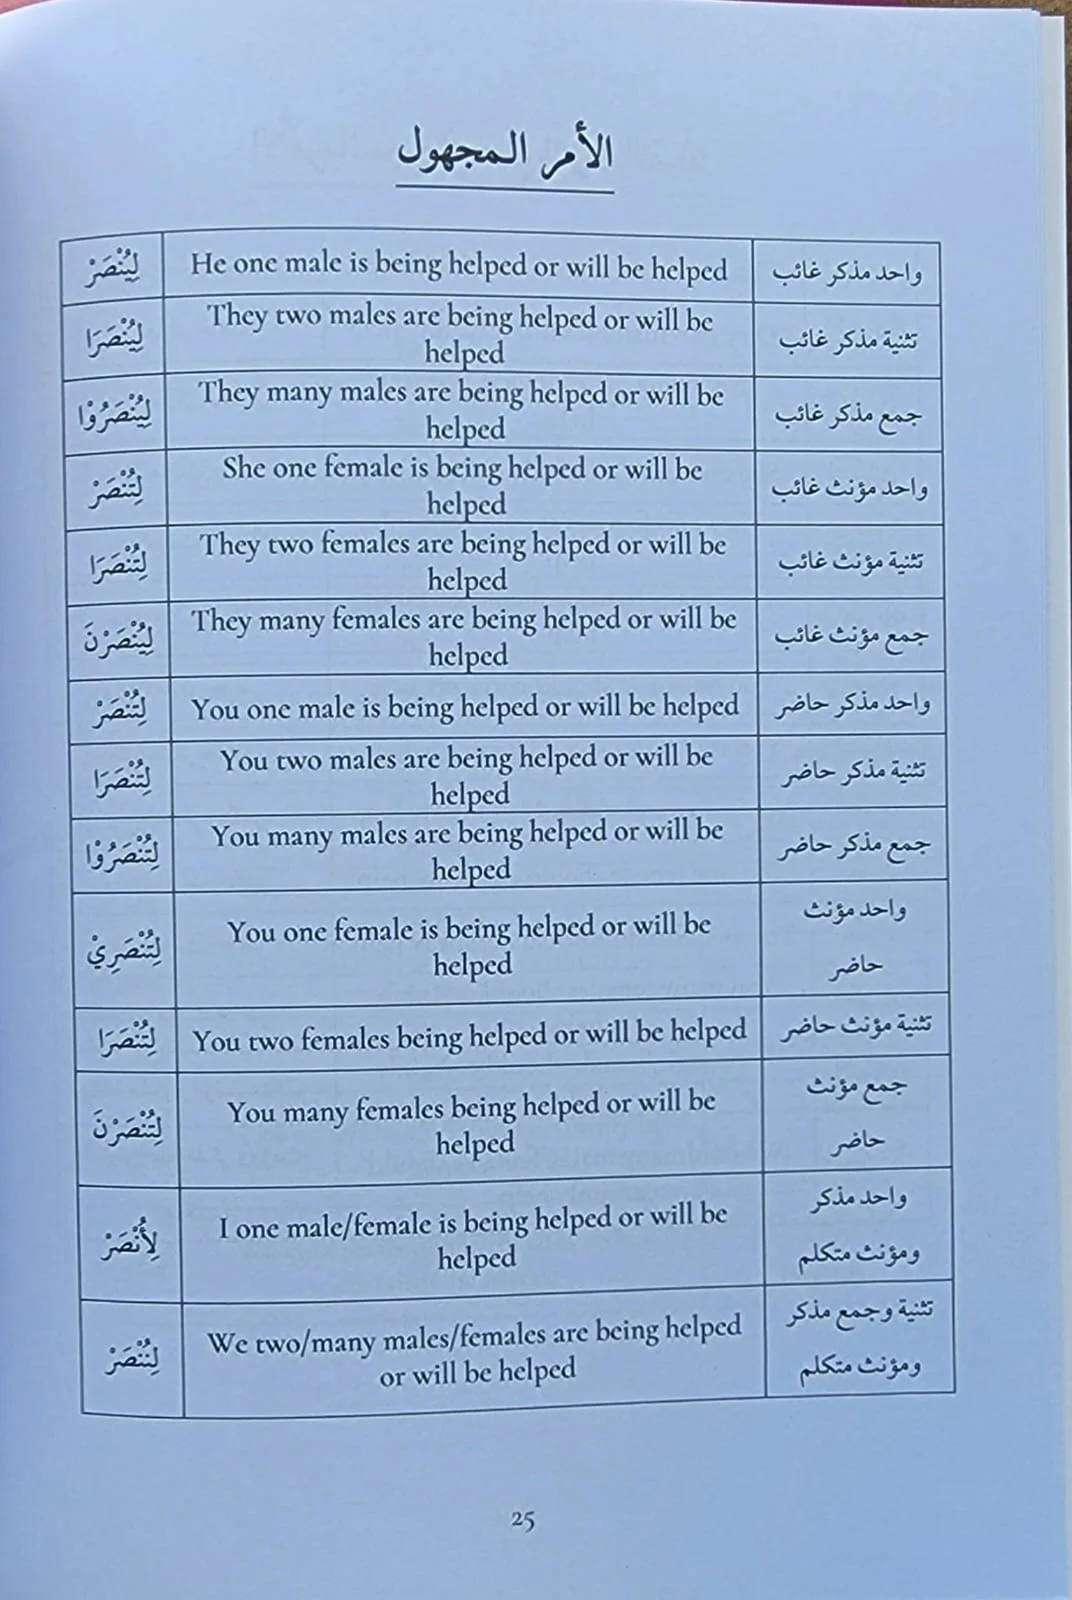 الأمر المجهول
لِيُنْصَرْ He one male is being helped or will be helped واحد مذكر غائب
لِيُنْصَرَا They two males are being helped or will be helped تثنية مذكر غائب
لِيُنْصَرُوْا They many males are being helped or will be helped جمع مذكر غائب
لِتُنْصَرْ She one female is being helped or will be helped واحد مؤنث غائب
لِتُنْصَرَا They two females are being helped or will be helped تثنية مؤنث غائب
لِيُنْصَرْنَ They many females are being helped or will be helped جمع مؤنث غائب
لِتُنْصَرْ You one male is being helped or will be helped واحد مذكر حاضر
لِتُنْصَرَا You two males are being helped or will be helped تثنية مذكر حاضر
لِتُنْصَرُوْا You many males are being helped or will be helped جمع مذكر حاضر
لِتُنْصَرِيْ You one female is being helped or will be helped واحد مؤنث حاضر
لِتُنْصَرَا You two females being helped or will be helped تثنية مؤنث حاضر
لِتُنْصَرْنَ You many females being helped or will be helped جمع مؤنث حاضر
لِأُنْصَرْ I one male/female is being helped or will be helped واحد مذكر ومؤنث متكلم
لِنُنْصَرْ We two/many males/females are being helped or will be helped تثنية وجمع مذكر ومؤنث متكلم
25